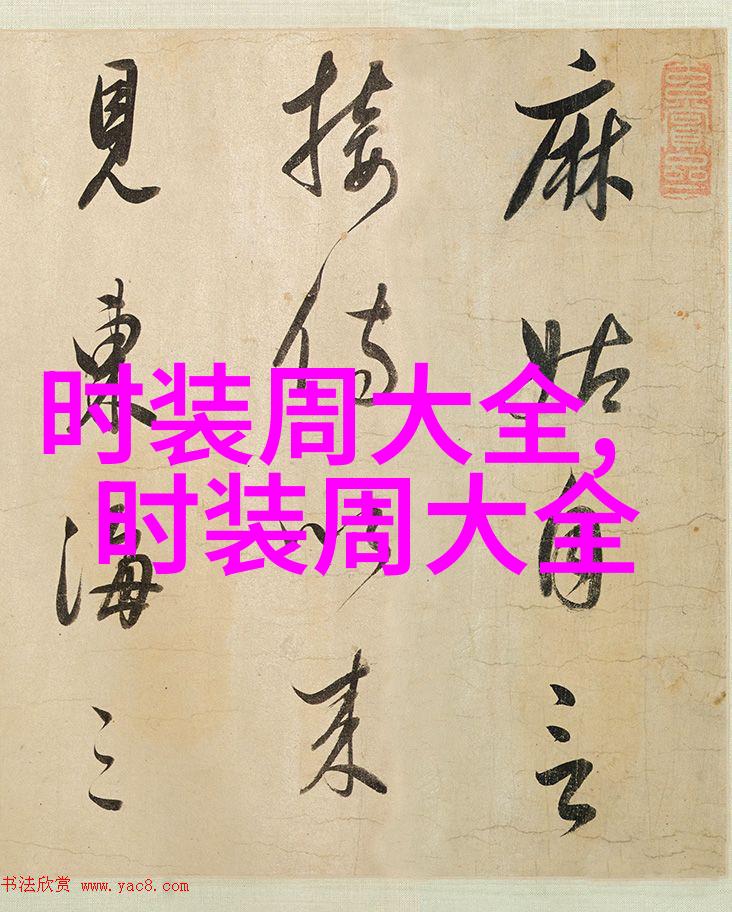 麻姑自言
接侍以来
見東海三
时装周大全,
时装周大全
书法欣赏 www.yac8.com